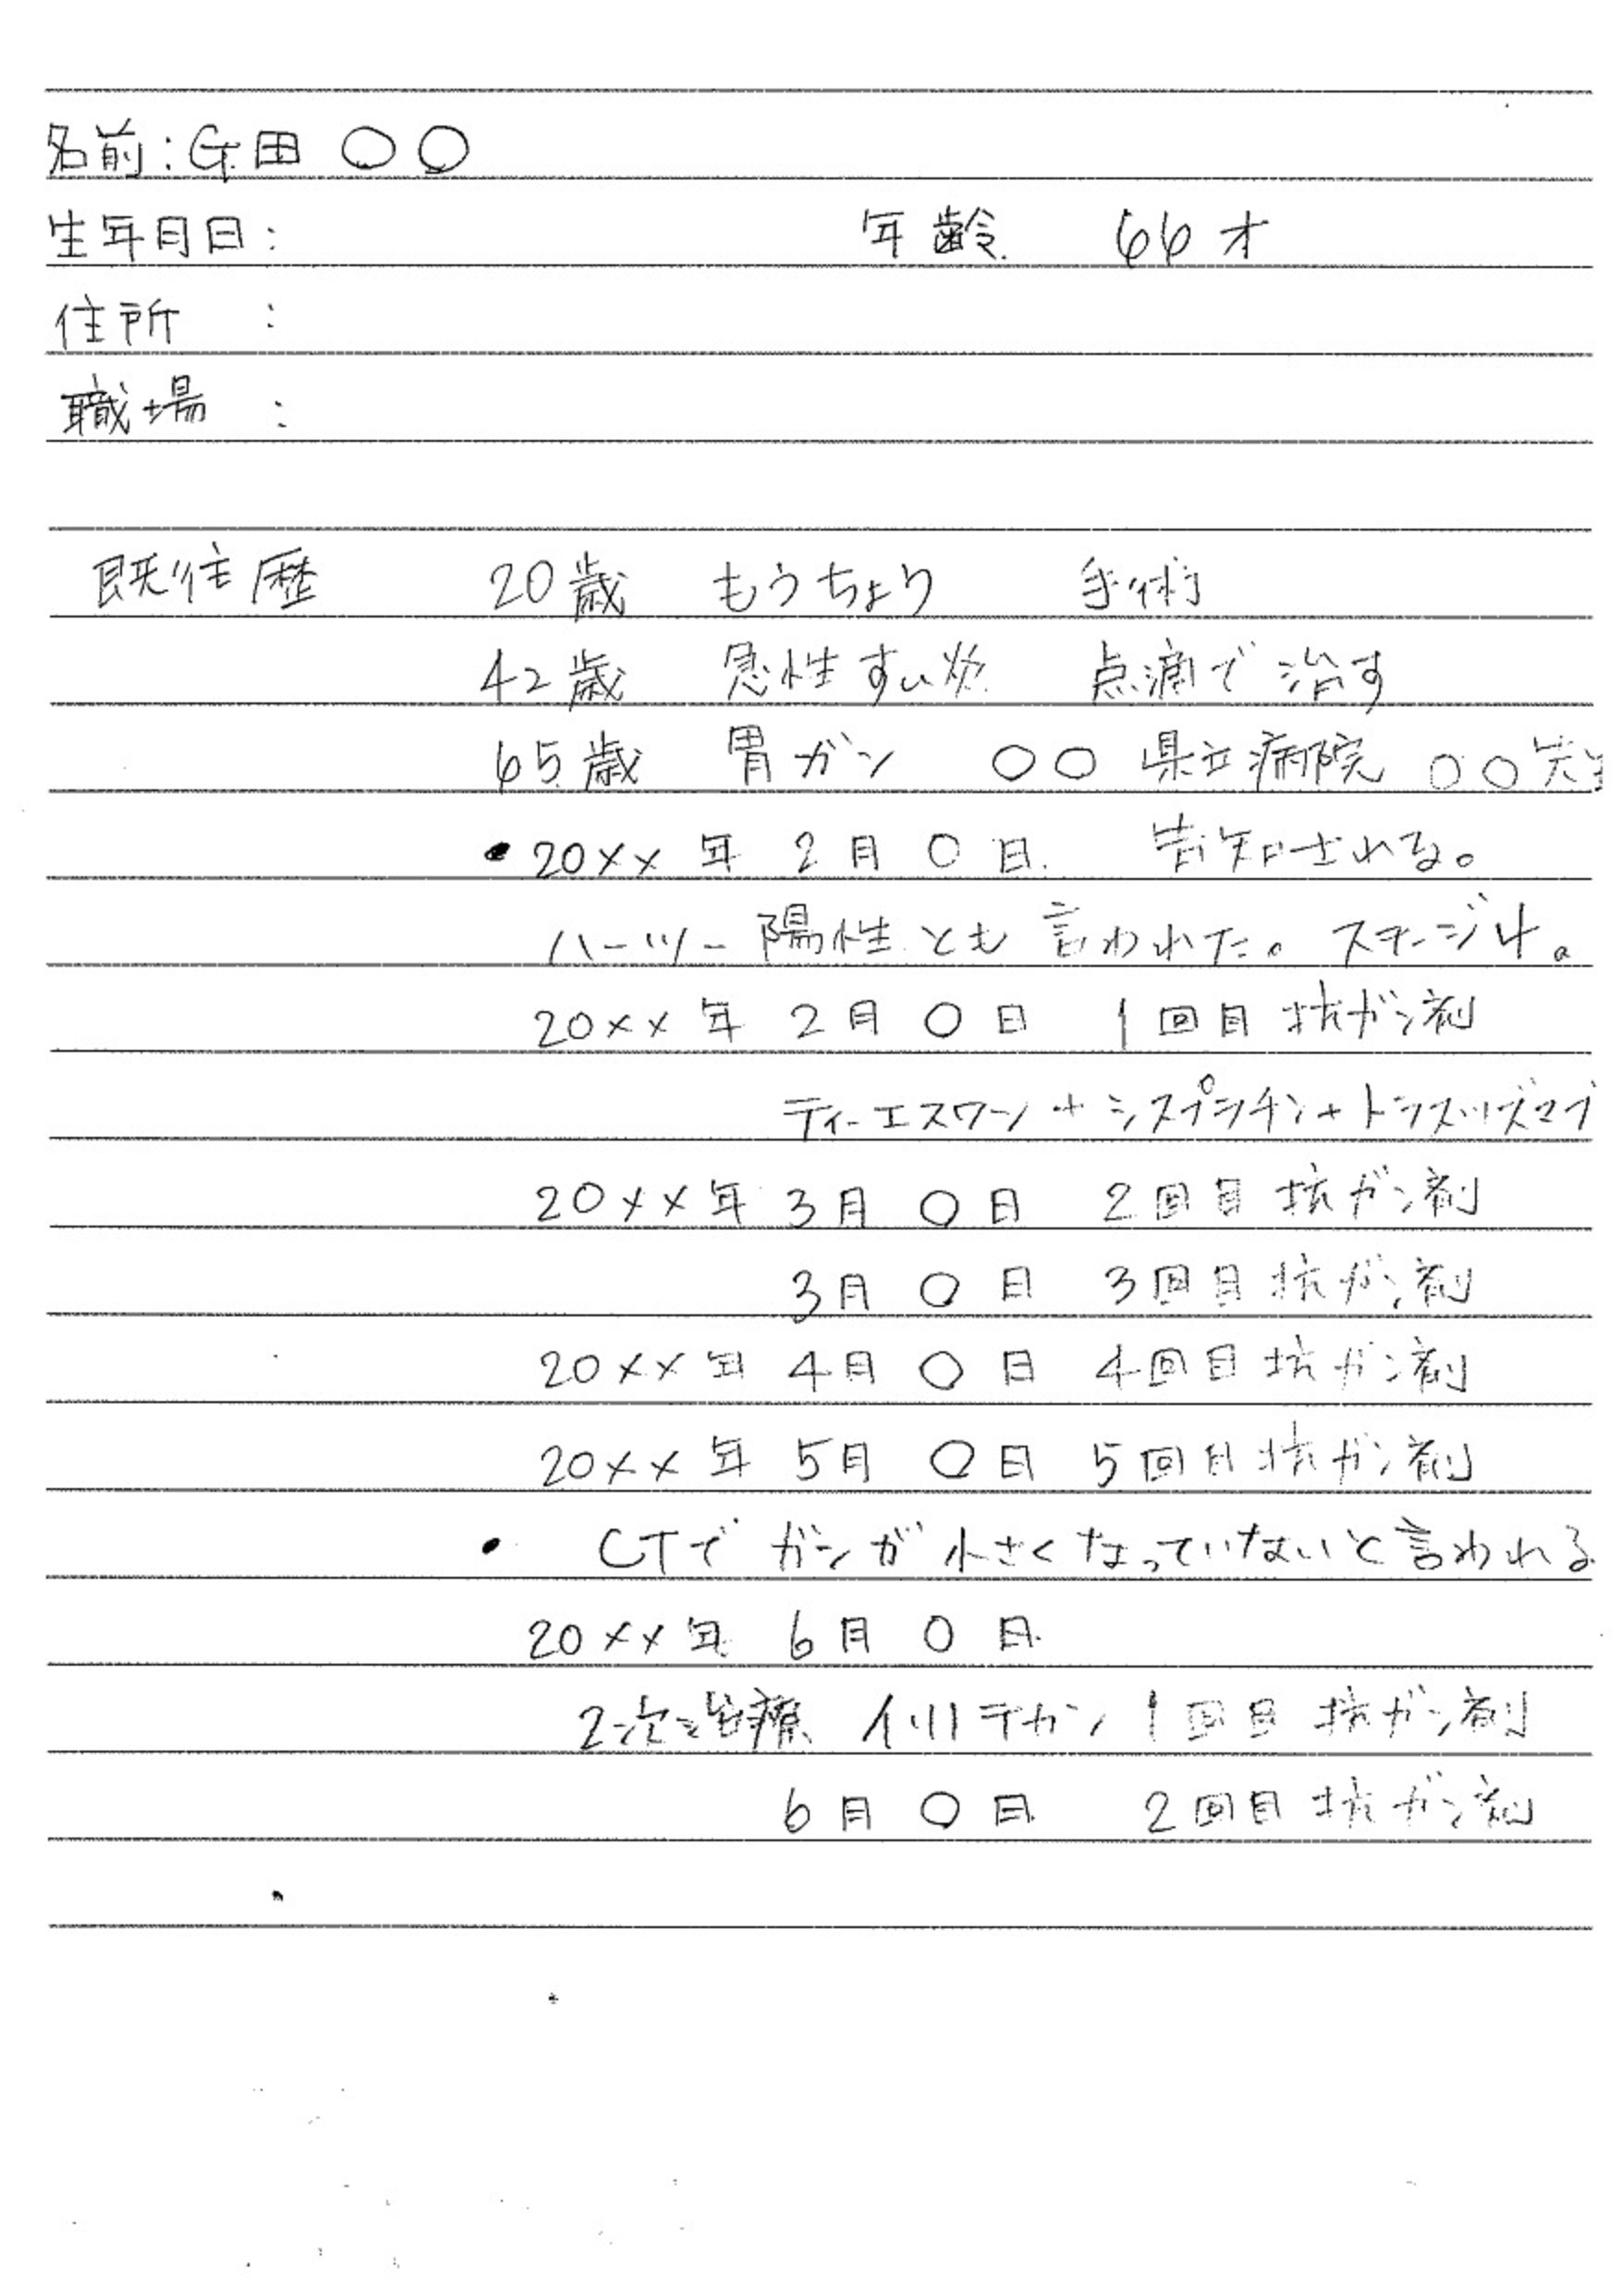 名前:G田 〇〇
生年月日: 年齢 66才
住所 :
職場 :
既往歴 20歳 もうちょう 手術
42歳 急性すい炎 点滴で治す
65歳 胃ガン 〇〇 県立病院 〇〇先生
・20××年 2月 〇日. 告知される。
ハーツー陽性とも言われた。ステージ4。
20××年 2月 〇日 1回目 抗ガン剤
ティーエスワン+シスプラチン+トラスツズマブ
20××年 3月 〇日 2回目 抗ガン剤
3月 〇日 3回目 抗ガン剤
20××年 4月 〇日 4回目 抗ガン剤
20××年 5月 〇日 5回目 抗ガン剤
・ CTで ガンが小さくなっていないと言われる
20××年 6月 〇日
2次治療 イリノテカン 1回目 抗ガン剤
6月 〇日 2回目 抗ガン剤